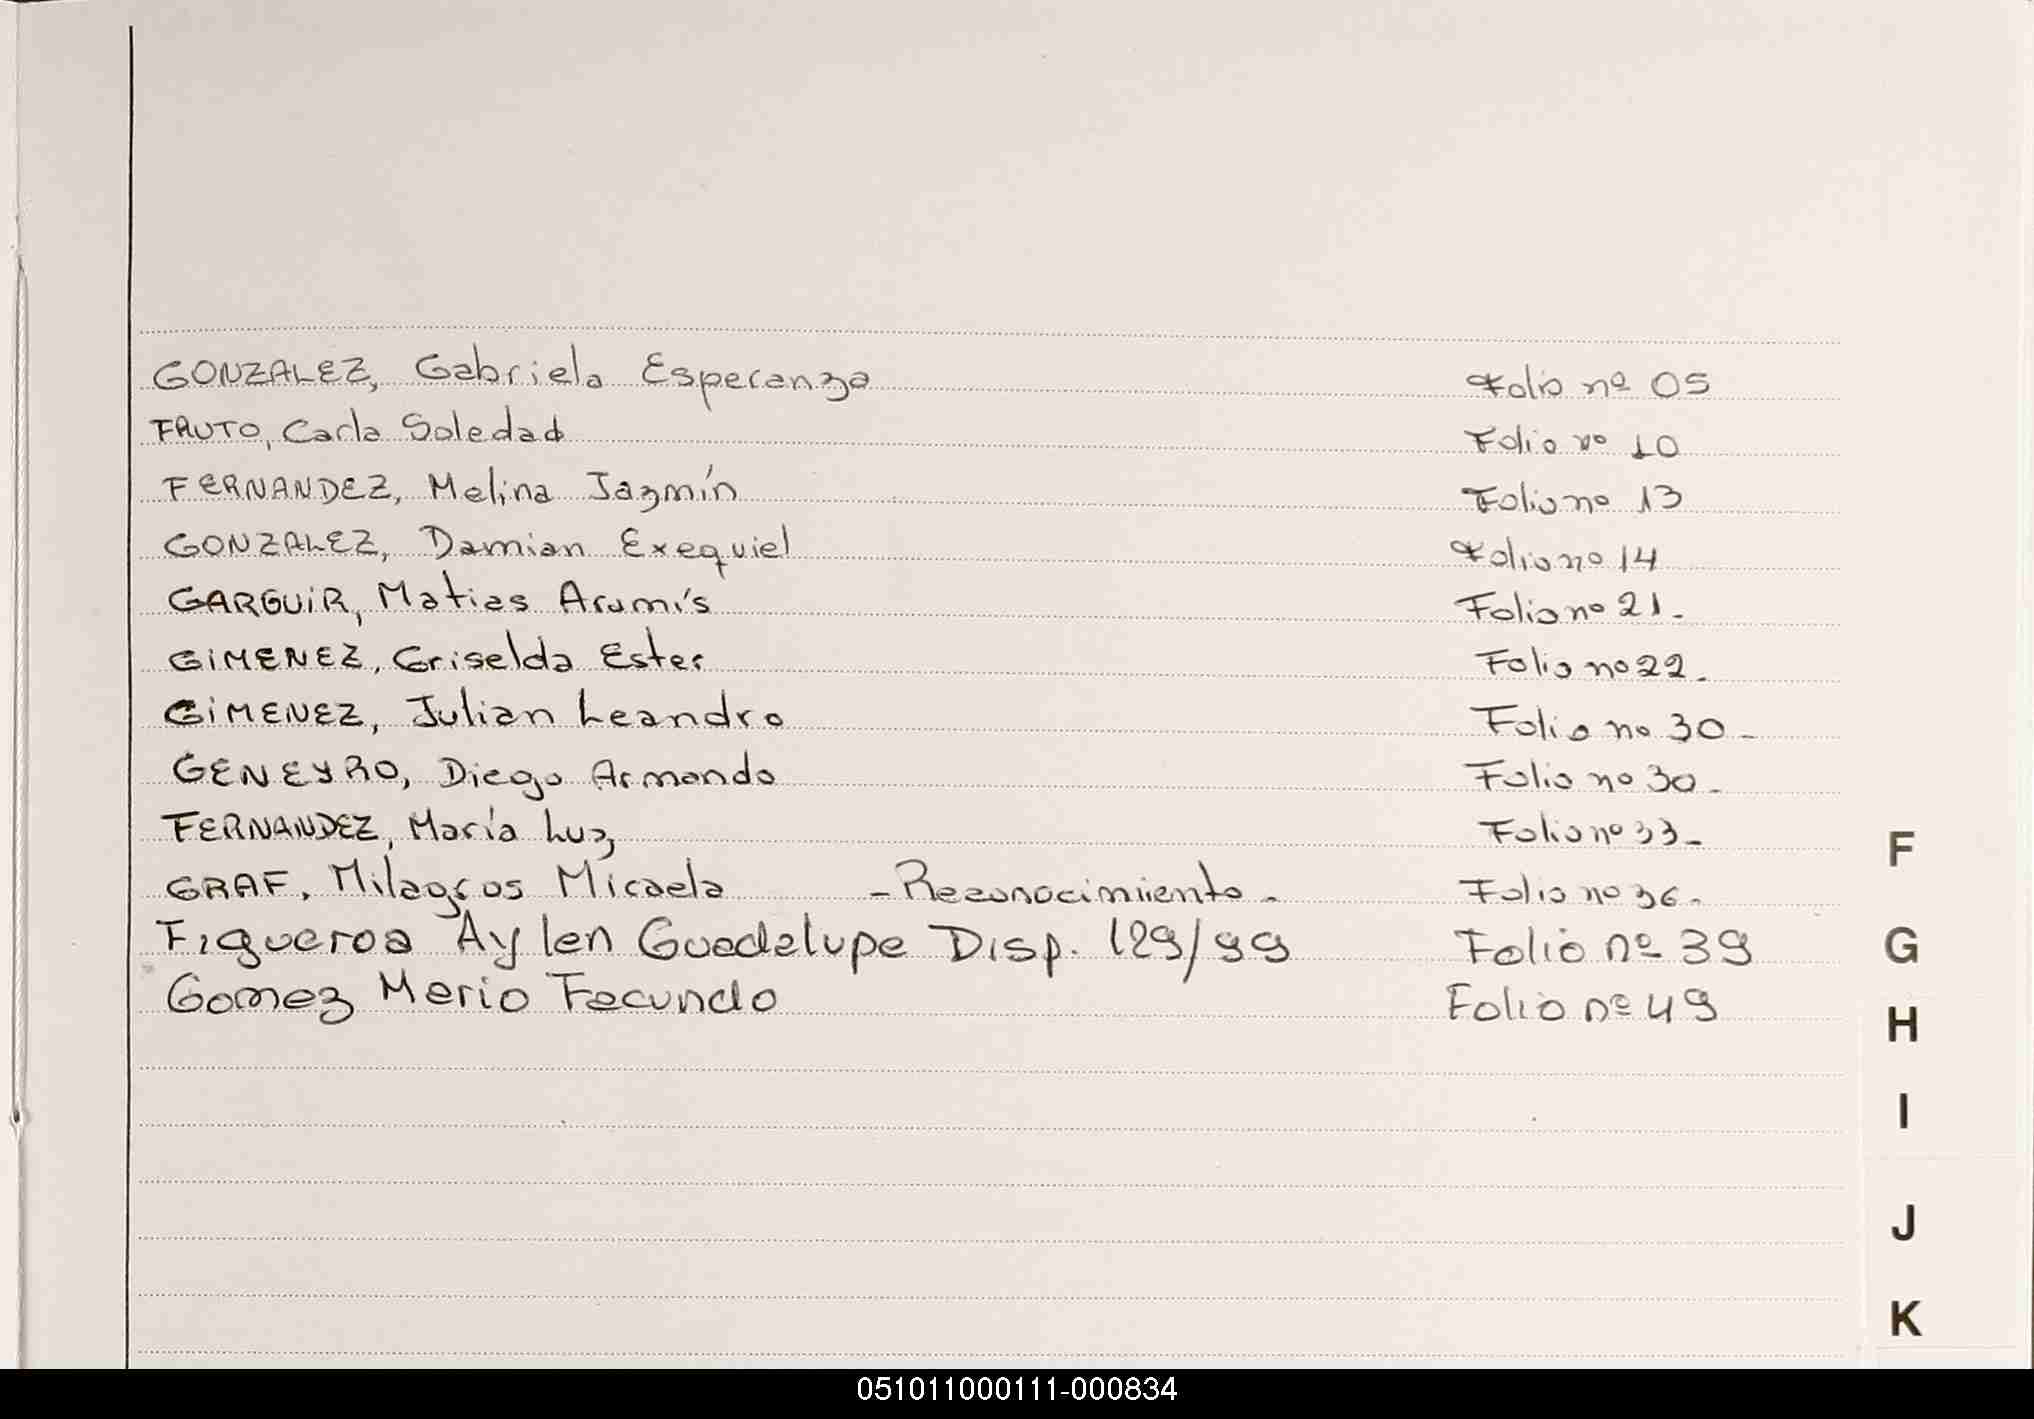 GONZALEZ, Gabriela Esperanza Folio nº 05
FRUTO, Carla Soledad Folio nº 10
FERNANDEZ, Melina Jazmín Folio nº 13
GONZALEZ, Damian Exequiel Folio nº 14
GARGUIR, Matias Aramís Folio nº 21.-
GIMENEZ, Griselda Ester Folio nº 22.
GIMENEZ, Julian Leandro Folio nº 30-
GENEYRO, Diego Armando Folio nº 30-
FERNANDEZ, María Luz Folio nº 33-
GRAF, Milagros Micaela -Reconocimiento- Folio nº 36-
Figueroa Aylen Guadalupe Disp. 129/99 Folio nº 39
Gomez Mario Facundo Folio nº 49
F
G
H
I
J
K
051011000111-000834